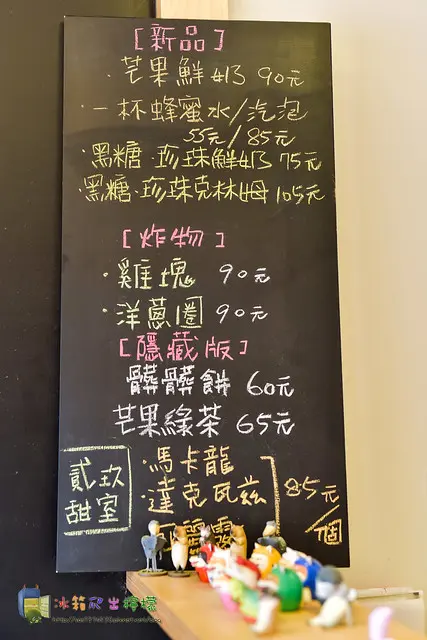 [新品]
·芒果鮮奶 90元
·一杯蜂蜜水/汽泡
55元/85元
·黑糖·珍珠鮮奶 75元
·黑糖·珍珠克林姆 105元
[炸物]
·雞塊 90元
·洋蔥圈 90元
[隱藏版]
髒髒餅 60元
芒果綠茶 65元
貳玖
甜室
·馬卡龍
·達克瓦茲
85元/個
冰箱爬出檸檬